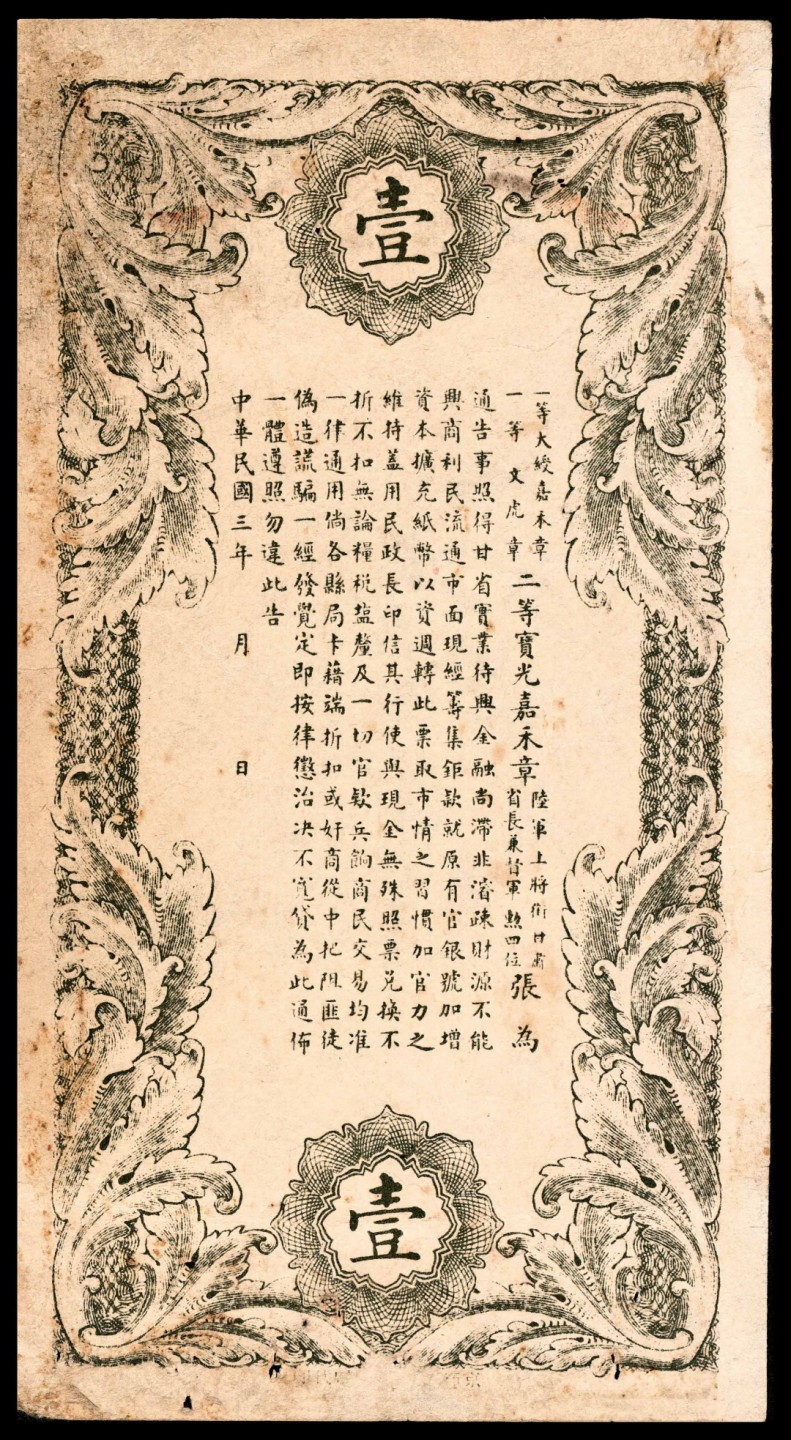 壹
一等大綬嘉禾章
一等文虎章
二等寶光嘉禾章
陸軍上將銜甘肅
省長兼督軍勲四位
張為
通告事照得甘省實業待興金融尚滯非濬疎財源不能
興商利民流通市面現經籌集鉅款就原有官銀號加增
資本擴充紙幣以資週轉此票取市情之習慣加官力之
維持蓋用民政長印信其行使與現金無殊照票兌換不
折不扣無論糧税塩釐及一切官欵兵餉商民交易均准
一律通用倘各縣局卡藉端折扣或奸商從中把阻匪徒
偽造謊騙一經發覺定即按律懲治决不寬貸為此通佈
一體遵照勿違此告
中華民國三年 月 日
壹